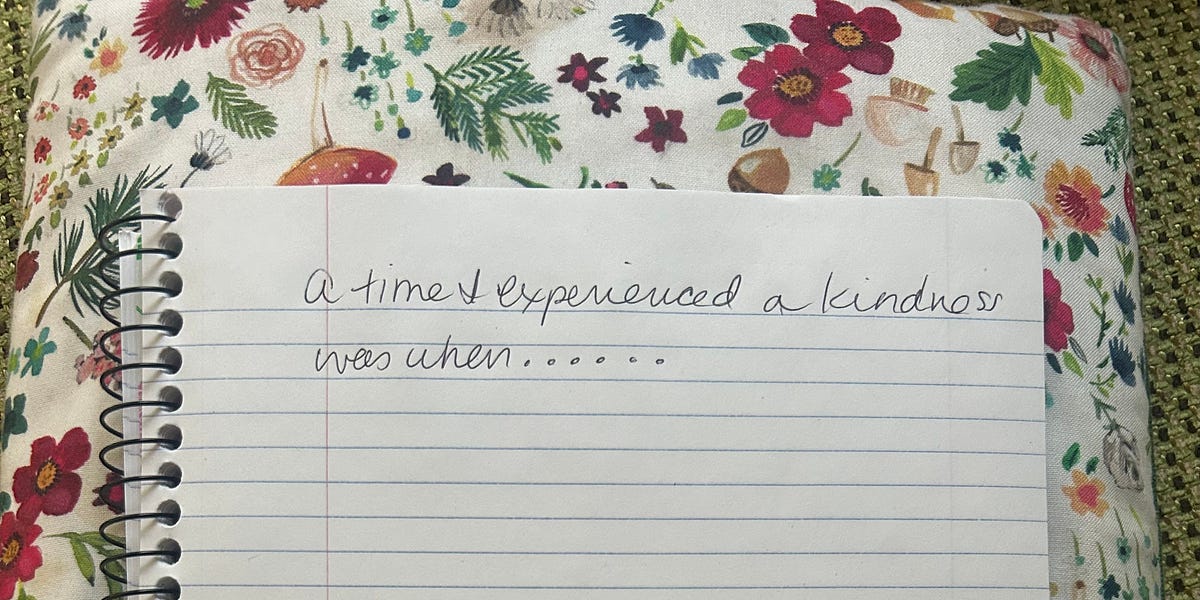 A time I experienced a kindness
was when......